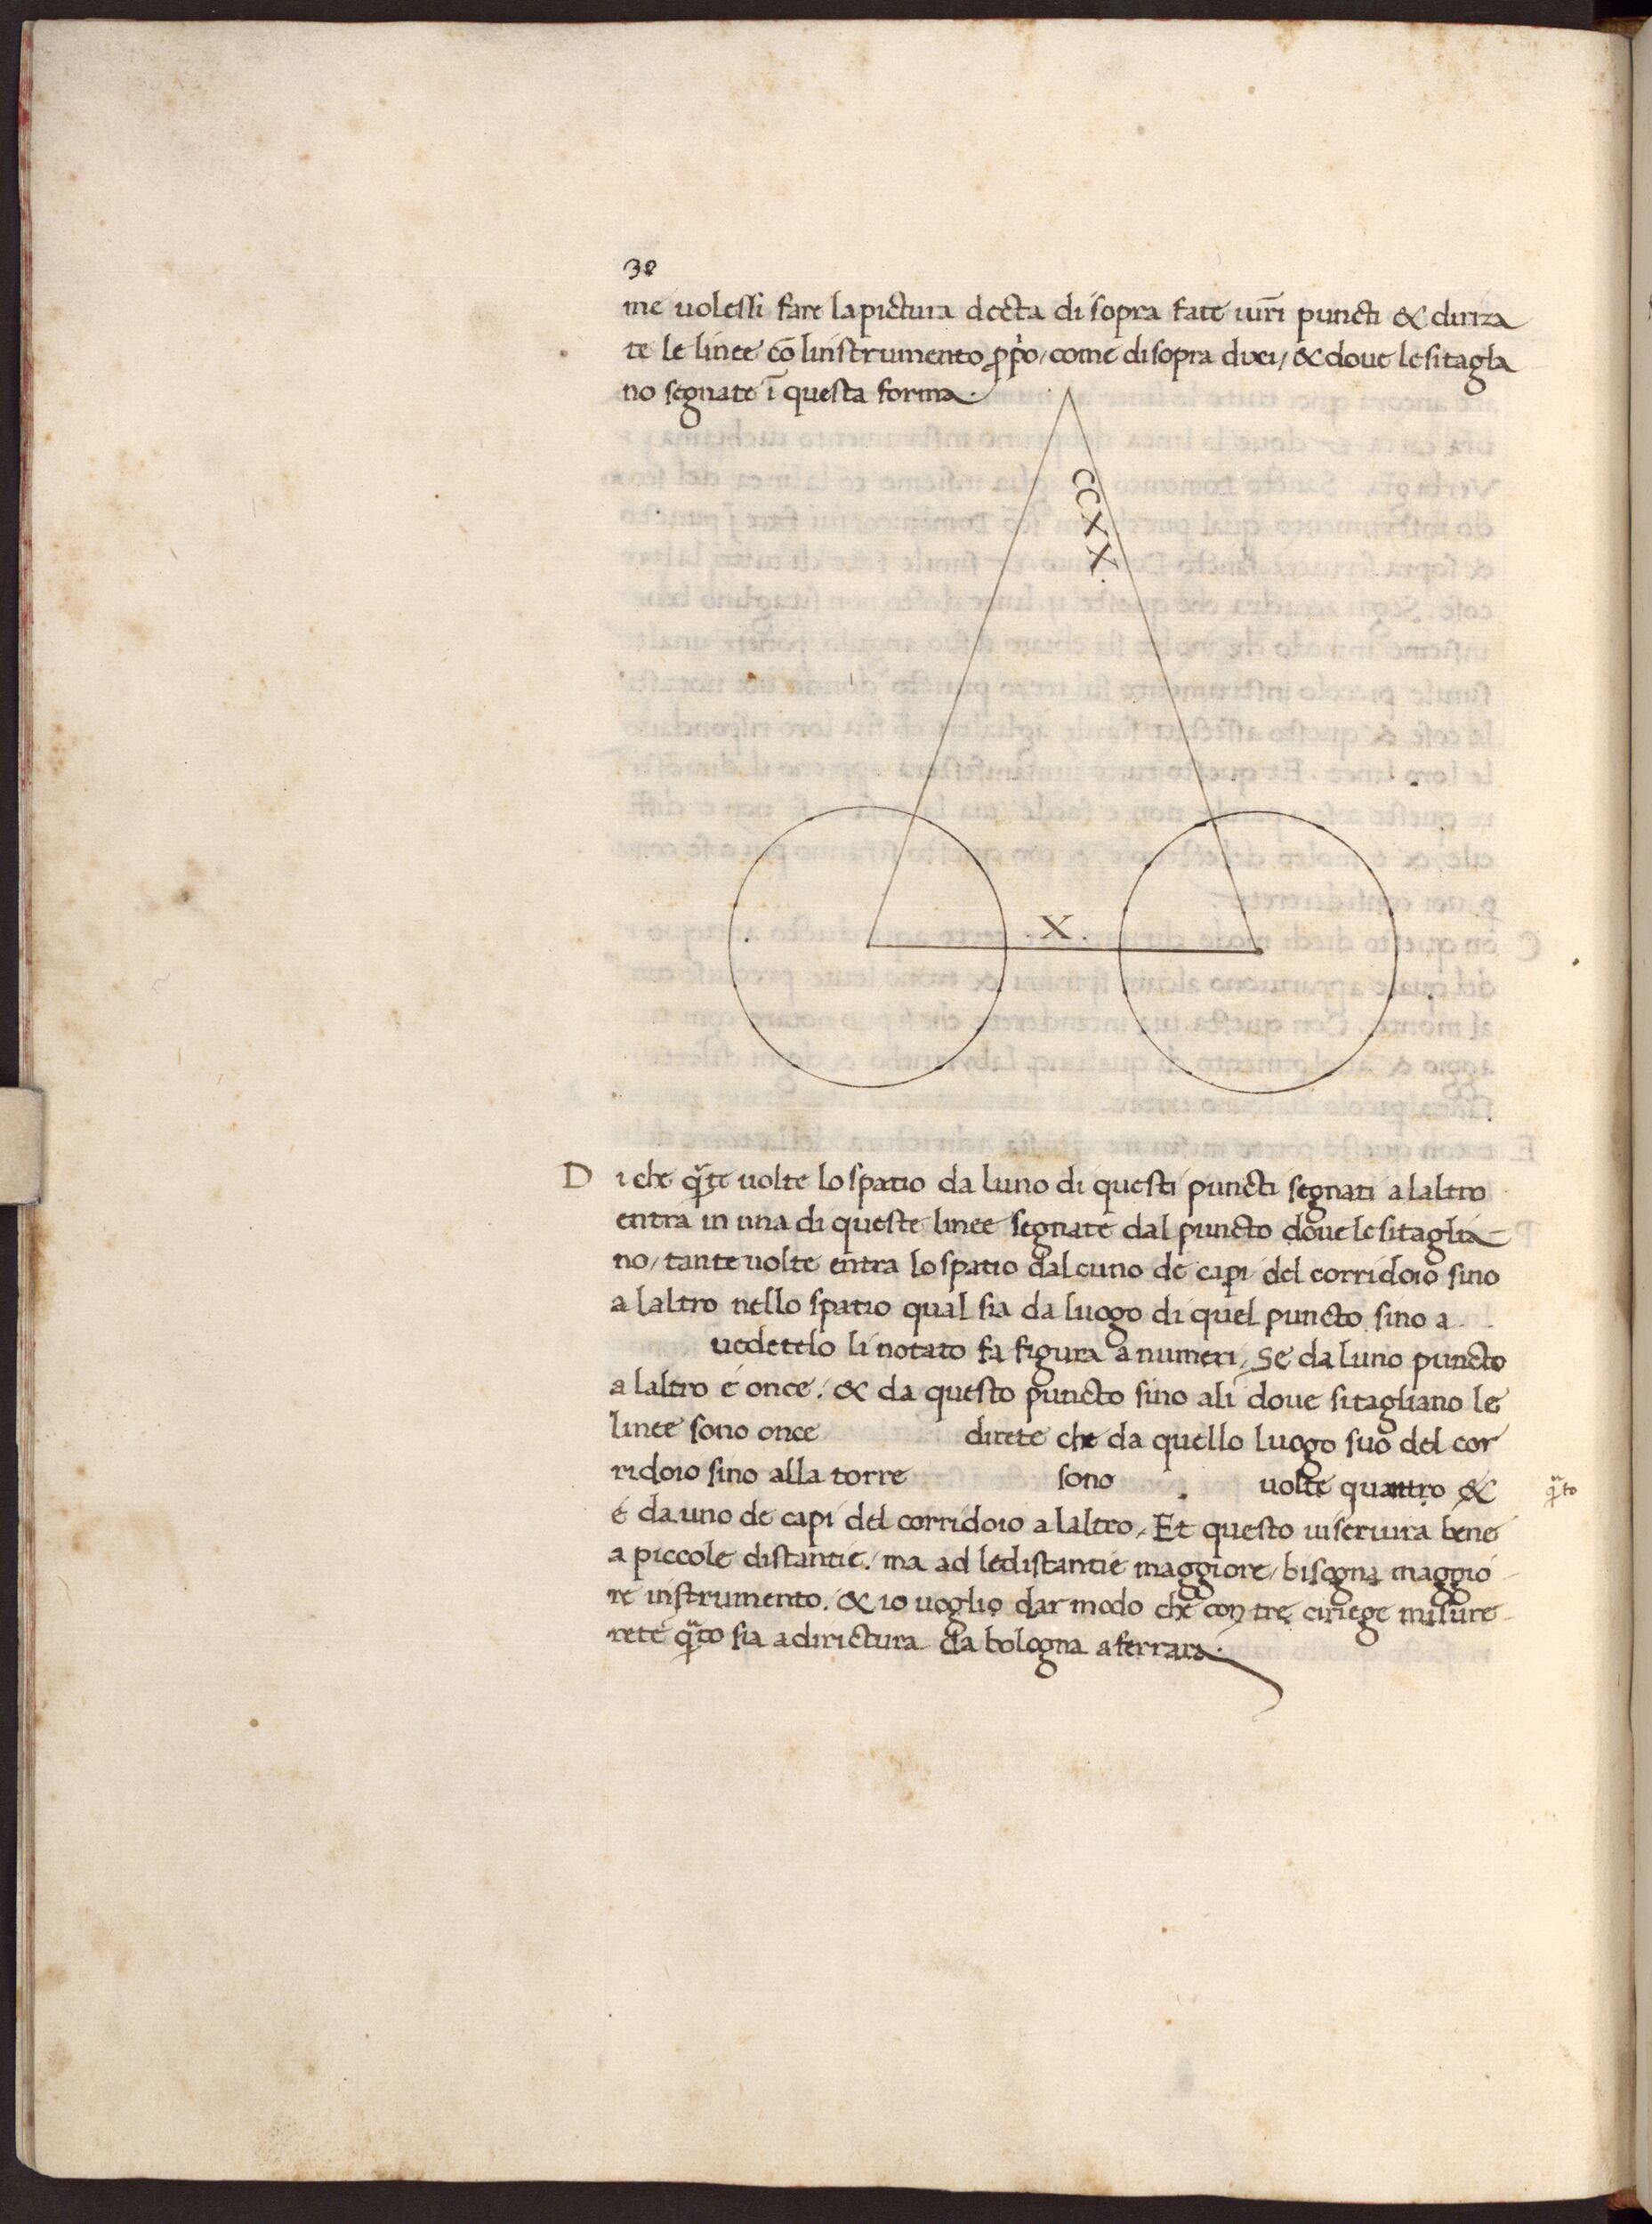 38
me uolessi fare la pictura decta di sopra fate uiri puncti & diriza
te le linee cō linstrumento ꝓpo/ come di sopra dixi/ & doue le si tagla
no segnate ī questa forma.
CCXX.
.X.
D i che q̄te uolte lo spatio da luno di questi puncti segnati a laltro
entra in una di queste linee segnate dal puncto doue le si taglia
no/ tante uolte entra lo spatio dal cuno de capi del corridoio sino
a laltro nello spatio qual sia da luogo di quel puncto sino a
uedetelo li notato fa figura a numeri/ Se da luno puncto
a laltro é once. & da questo puncto sino ali doue si tagliano le
linee sono once direte che da quello luogo suo del cor
ridoio sino alla torre sono uolte quantro &
q̄to
é da uno de capi del corridoio a laltro. Et questo ui seruira bene
a piccole distantie. ma ad le distantie maggiore/ bisogna maggio
re instrumento. & io uoglio dar modo che con tre ciriege misure
rete q̄to sia a dirictura da bologna a ferrara.